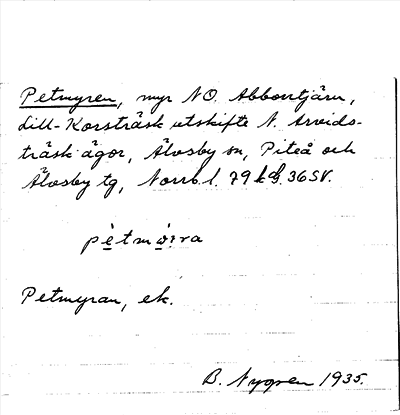 Petmyren, myr NO. Abborrtjärn,
Lill-Korsträsk utskifte N. Arvids-
träsk ägor, Älvsby sn, Piteå och
Älvsby tg, Norrb. l. 79 k g. 36 SV.
pètmø̀ra
Petmyran, ek.
B. Nygren 1935.